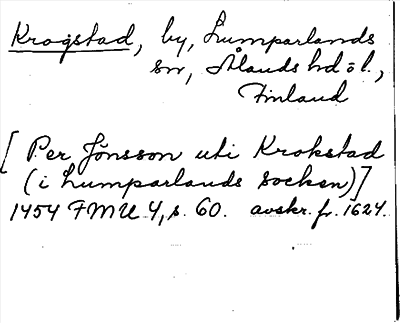 Krogstad, by, Lumparlands
sn, Ålands hd o l.,
Finland
[Per Jönsson uti Krokstad
(i Lumparlands socken)]
1454 FMU 4, s. 60. avskr. fr. 1624.